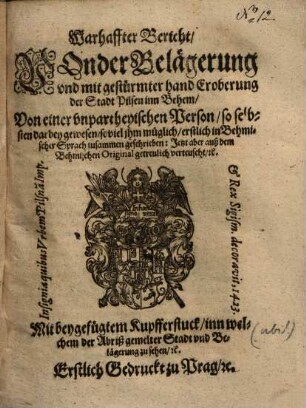 No 12
Warhaffter Bericht/
VOnder Belägerung
vnd mit gestürmter hand Eroberung
der Stadt Pilsen inn Behem/
Von einer vnpartheyischen Person/ so selb-
sten dar bey gewesen/ so viel jhm müglich/ erstlich in Behmi-
scher Sprach zusammen geschrieben: Jetzt aber auß dem
Behmischen Original getreulich verteuscht/ ꝛc.
Insignia quibus Vrbem Pilsnā Imp.
& Rex Sigism. decoravit, 1423.
Mit beygefügtem Kupfferstuck/ inn wel-
chem der Abriß gemelter Stadt vnd Be-
lägerung zu sehen/ ꝛc.
(abid.)
Erstlich Gedruckt zu Prag/ ꝛc.